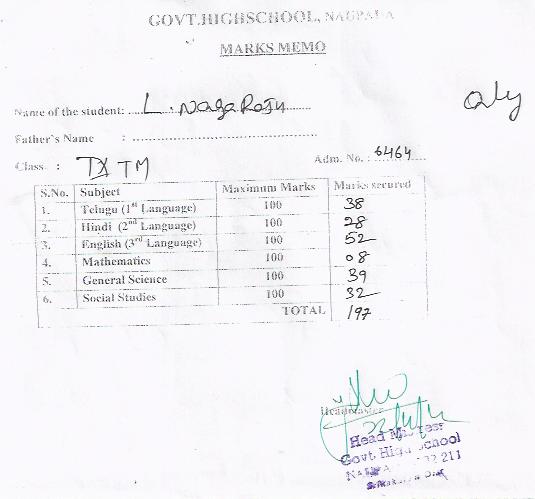 GOVT.HIGHSCHOOL, NAUPADA
MARKS MEMO
Name of the student: L. Naga Raju
Qly
Father's Name :
Class : IX TM
Adm. No. : 6464
S.No. Subject Maximum Marks Marks secured
1. Telugu (1st Language) 100 38
2. Hindi (2nd Language) 100 28
3. English (3rd Language) 100 52
4. Mathematics 100 08
5. General Science 100 39
6. Social Studies 100 32
TOTAL 197
Headmaster
Head
Govt High School
211